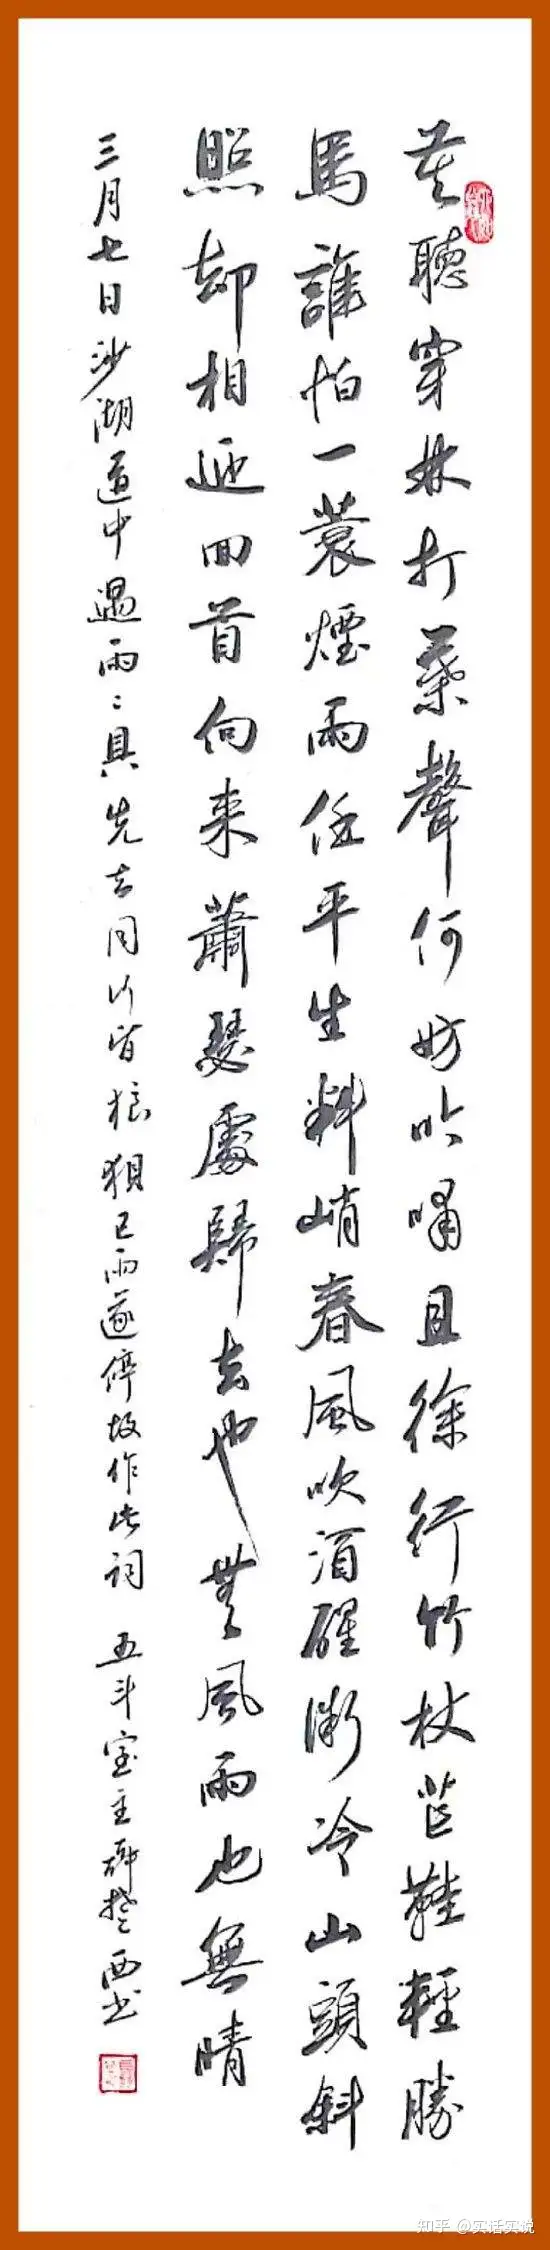 莫聽穿林打葉聲何妨吟嘯且徐行竹杖芒鞋輕勝
馬誰怕一蓑煙雨任平生料峭春風吹酒醒微冷山頭斜
照却相迎回首向来蕭瑟處歸去也無風雨也無晴
三月七日沙湖道中遇雨〻具先去同行皆狼狽已雨遂停故作此詞 五斗室主西书
知乎 @实话实说